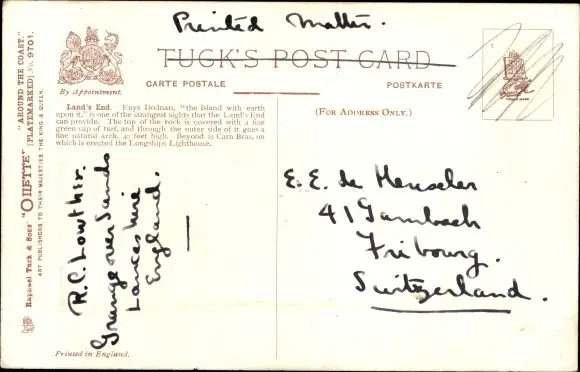 Printed Matter.
TUCK'S POST CARD
By Appointment.
CARTE POSTALE
POSTKARTE
(FOR ADDRESS ONLY.)
Land's End. Enys Dodnan, "the island with earth
upon it," is one of the strangest sights that the Land's End
can provide. The top of the rock is covered with a fine
green cap of turf, and through the outer side of it goes a
fine natural arch, 40 feet high. Beyond is Carn Bras, on
which is erected the Longships Lighthouse.
R.C. Lowther.
Grange over Sands
Lancashire
England.
E. E. de Heuseler
41 Gambach
Fribourg.
Switzerland.
Raphael Tuck & Sons' "OILETTE" [PLATEMARKED] No. 9701.
"AROUND THE COAST."
ART PUBLISHERS TO THEIR MAJESTIES THE KING & QUEEN.
Printed in England.